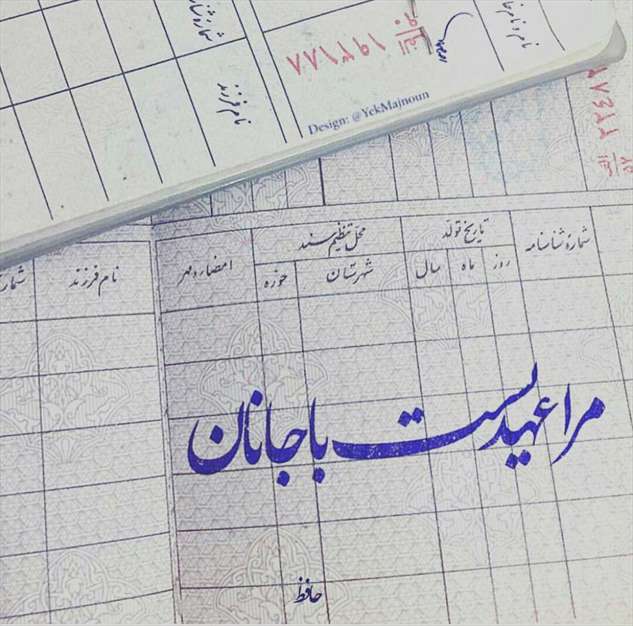 نام و نام خا
شماره شنا
نام فرزند
۱۹۴۱۸۸
Design: @YekMajnoun
شماره شناسنامه
تاریخ تولد
روز
ماه
سال
محل تنظیم سند
شهرستان
حوزه
امضاء و مهر
نام فرزند
شمار
مرا عهدیست با جانان
حافظ